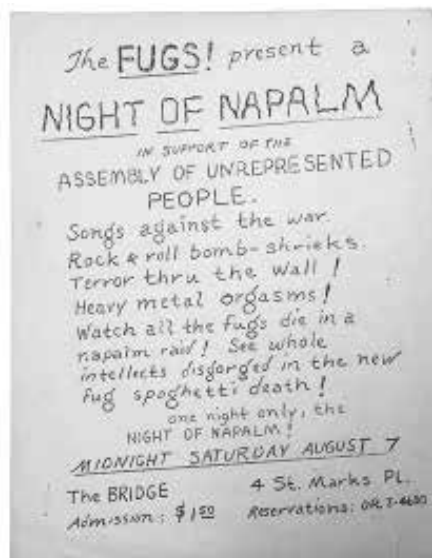 The FUGS! present a
NIGHT OF NAPALM
IN SUPPORT OF THE
ASSEMBLY OF UNREPRESENTED
PEOPLE.
Songs against the war.
Rock & roll bomb-shrieks.
Terror thru the Wall!
Heavy metal orgasms!
Watch all the fugs die in a
napalm raid! See whole
intellects disgorged in the new
fug spaghetti death!
one night only, the
NIGHT OF NAPALM!
MIDNIGHT SATURDAY AUGUST 7
The BRIDGE 4 St. Marks Pl.
Admission: $1.50 Reservations: OR.